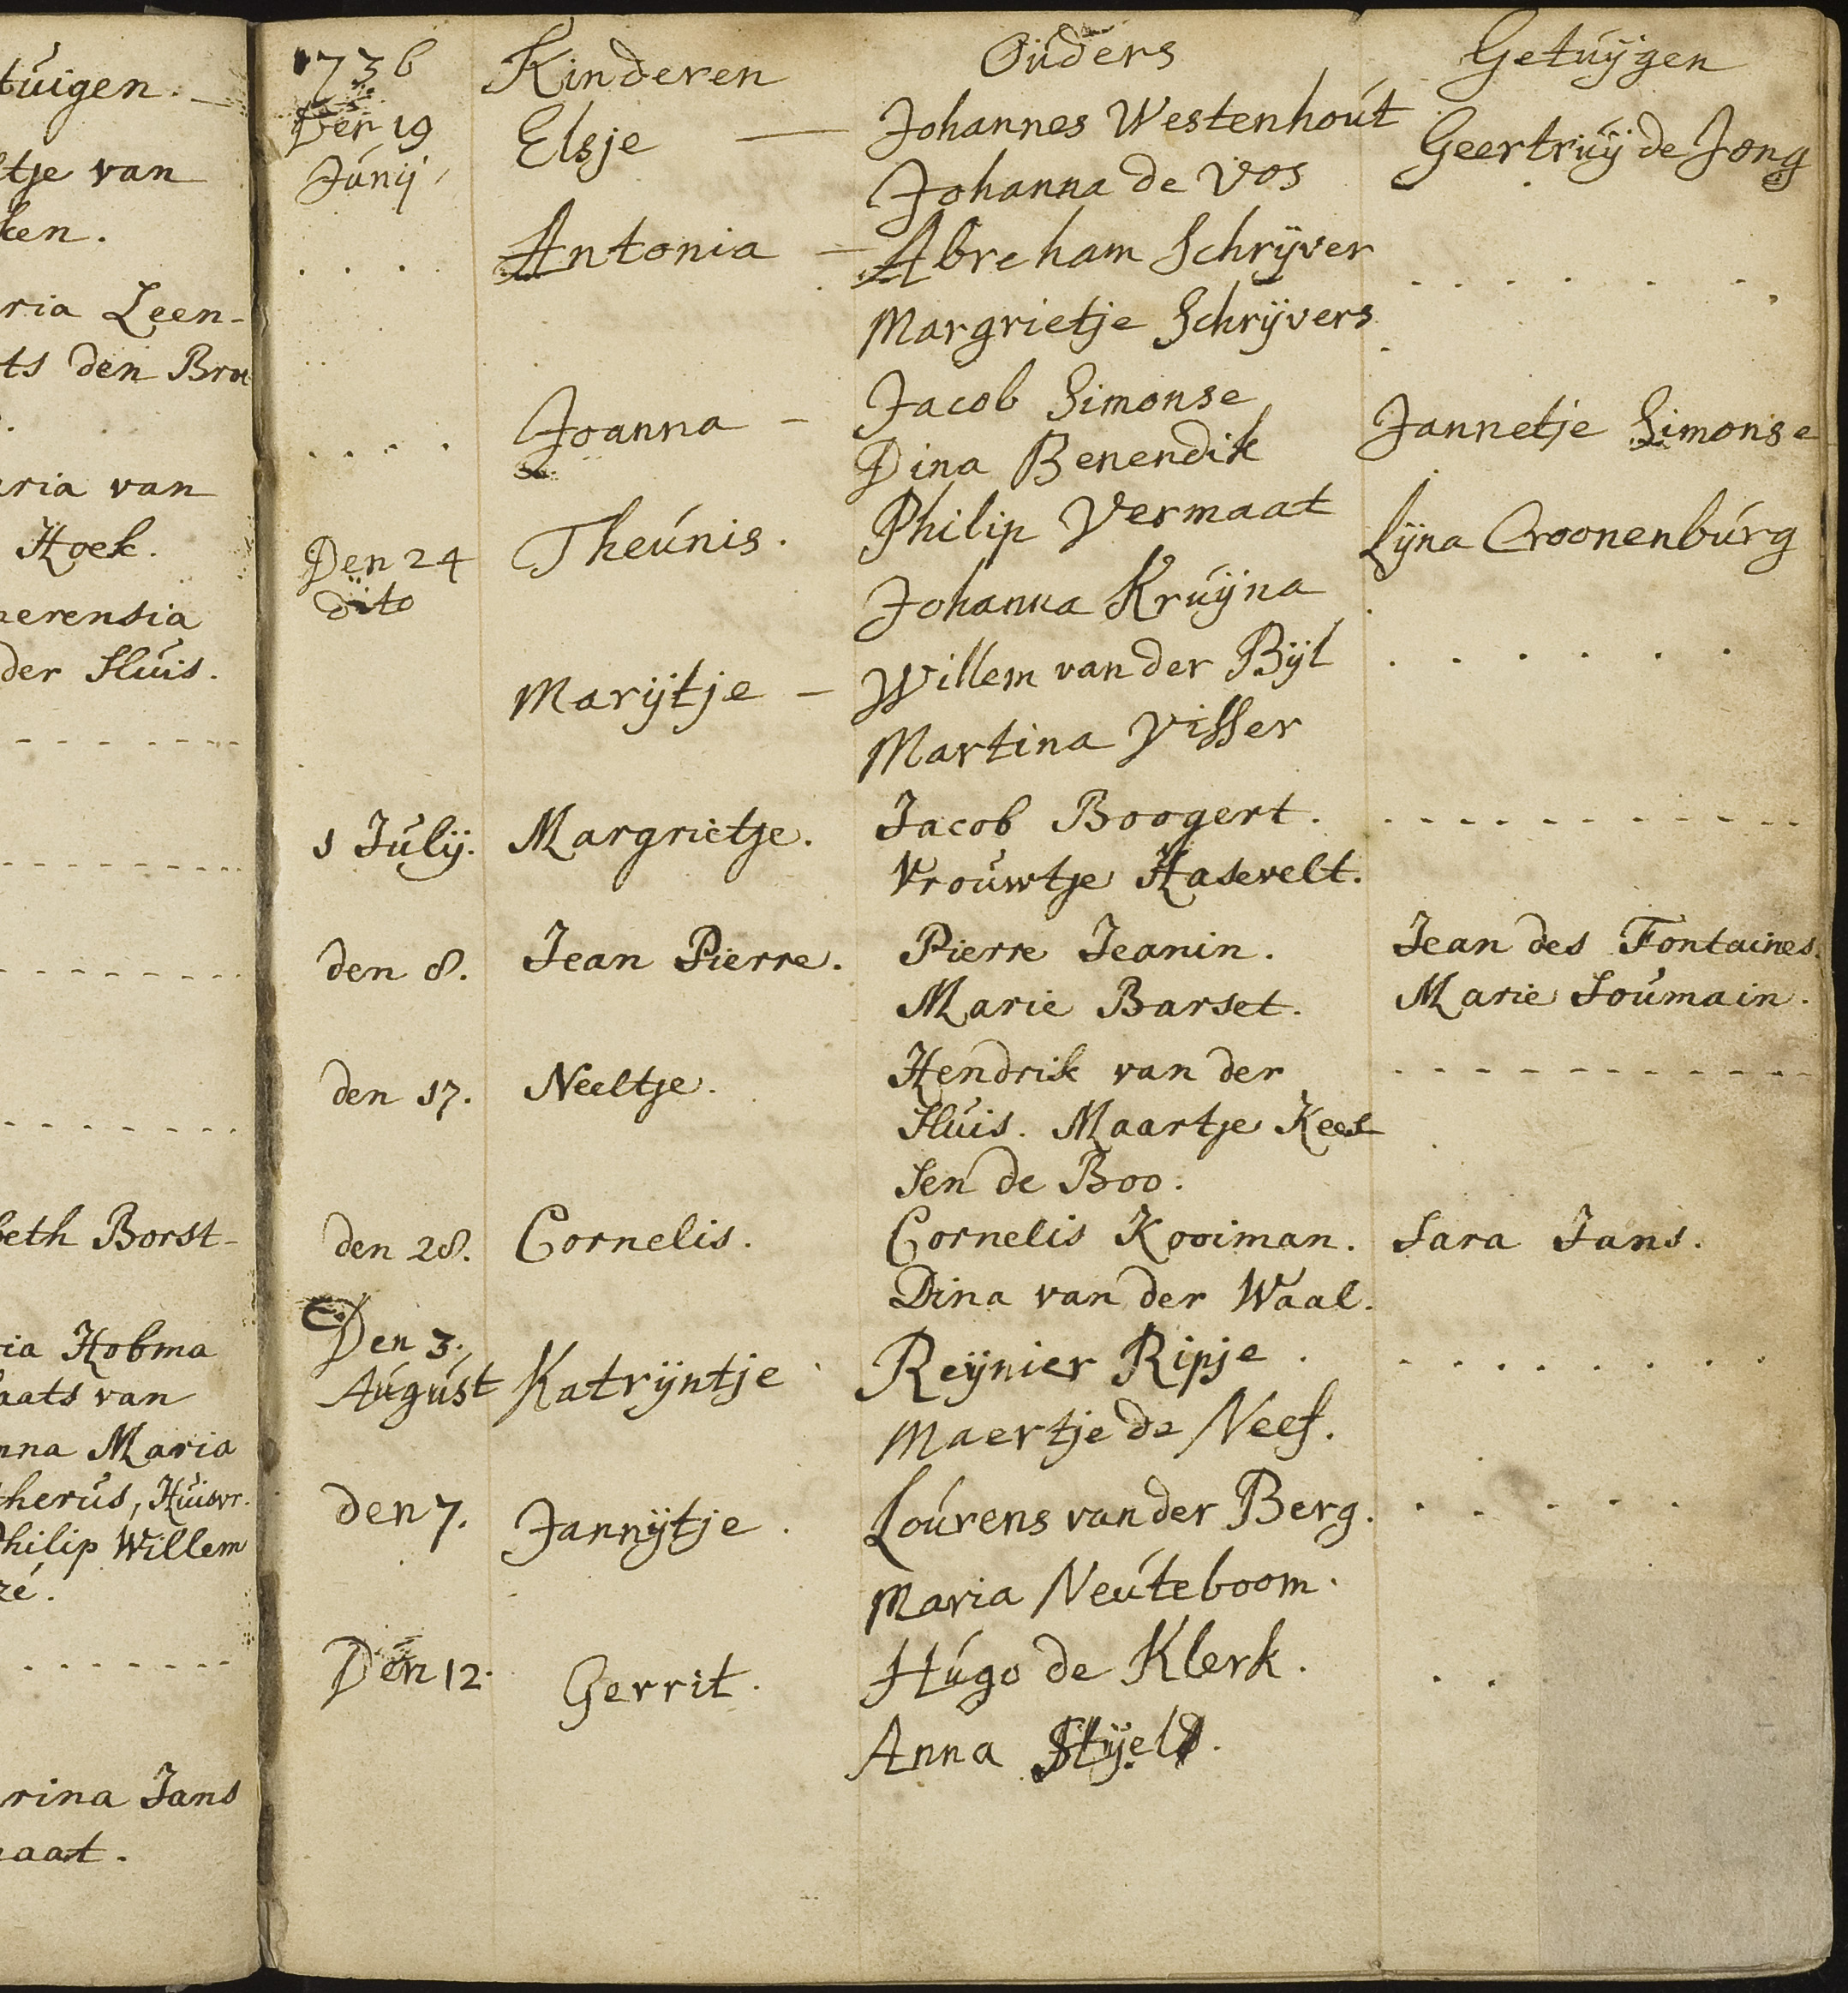 tuigen.
tje van
ken.
ria Leen-
ts den Bro
ria van
Hoek.
erensia
der Sluis.
beth Borst-
ria Hobma
aats van
nna Maria
therus, Huisvr.
Philip Willem
ré.
rina Jans
aat.
1736 Kinderen Ouders Getuÿgen
Den 19 Elsje — Johannes Westenhout Geertruÿ de Jong
Junÿ Johanna de Vos
. . . . Antonia — Abreham Schrÿver . . . . . . .
Margrietje Schrÿvers
. . . . Joanna — Jacob Simonse Jannetje Simonse
Dina Benendik
Den 24 Theunis. Philip Vermaat Lÿna Croonenburg
dito Johanna Kruÿna
Marÿtje — Willem van der Bÿl . . . . . .
Martina Visser
1 Julÿ. Margrietje. Jacob Boogert. - - - - - - - - - -
Vrouwtje Hasevelt.
den 8. Jean Pierre. Pierre Jeanin. Jean des Fontaines.
Marie Barset. Marie Soumain.
den 17. Neeltje. Hendrik van der - - - - - - - - - -
Sluis. Maartje Kees
sen de Boo.
den 28. Cornelis. Cornelis Kooiman. Sara Jans.
Dina van der Waal.
Den 3. August Katrÿntje Reÿnier Ripje . . . . . . . . .
Maertje de Neef.
den 7. Jannÿtje. Lourens van der Berg. . . . . .
Maria Neuteboom.
Den 12. Gerrit. Hugo de Klerk. . .
Anna